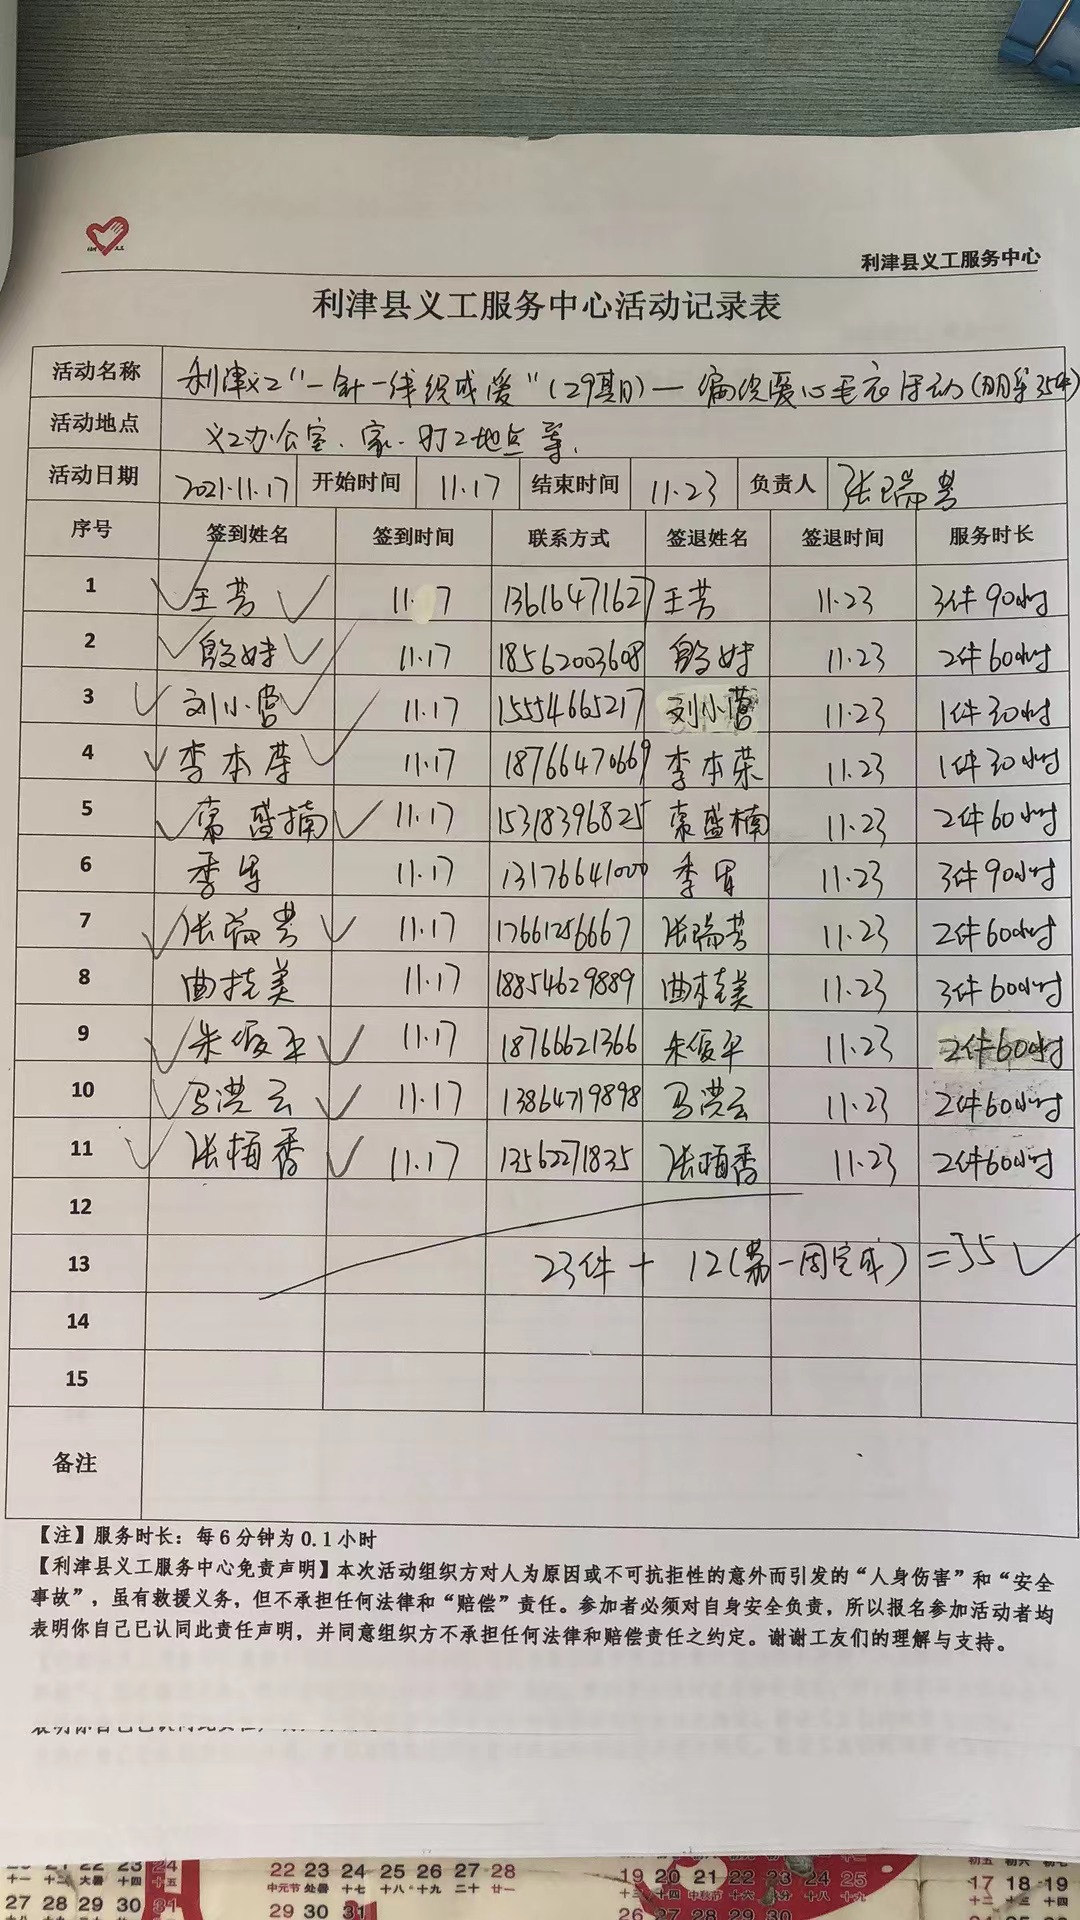 利津县义工服务中心
利津县义工服务中心活动记录表
活动名称 利津义工"一针一线织成爱"(29期)一编织爱心毛衣活动(
活动地点 义工办公室、家、打工地点等.
活动日期 2021.11.17 开始时间 11.17 结束时间 11.23 负责人 张瑞芳
序号 签到姓名 签到时间 联系方式 签退姓名 签退时间 服务时长
1 王芳 11.17 13616471627 王芳 11.23 3件90小时
2 11.17 18562003608 11.23 2件60小时
3 刘小营 11.17 15554665217 刘小营 11.23 1件30小时
4 李本荣 11.17 18766470669 李本荣 11.23 1件30小时
5 11.17 15318396825 11.23 2件60小时
6 11.17 13176641000 11.23 3件90小时
7 张瑞芳 11.17 17661256667 张瑞芳 11.23 2件60小时
8 曲桂美 11.17 18854629889 曲桂美 11.23 3件60小时
9 朱俊平 11.17 18766621366 朱俊平 11.23 2件60小时
10 马洪云 11.17 13864719898 马洪云 11.23 2件60小时
11 张梅香 11.17 13562271835 张梅香 11.23 2件60小时
12
13 23件+12(第一周完成)=35
14
15
备注
【注】服务时长：每6分钟为0.1小时
【利津县义工服务中心免责声明】本次活动组织方对人为原因或不可抗拒性的意外而引发的“人身伤害”和“安全
事故”，虽有救援义务，但不承担任何法律和“赔偿”责任。参加者必须对自身安全负责，所以报名参加活动者均
表明你自己已认同此责任声明，并同意组织方不承担任何法律和赔偿责任之约定。谢谢工友们的理解与支持。
22 23 24 22 23 24 25 26 27 28 19 20 21 22 23 24 25 17 18 19
大暑 十四 十五 中元节 处暑 十七 十八 十九 二十 廿一 十四 中秋节 十六 十八 十九 十二 十三 十四
27 28 29 30 31 29 30 31 26 27 28 29 30 24 25 26